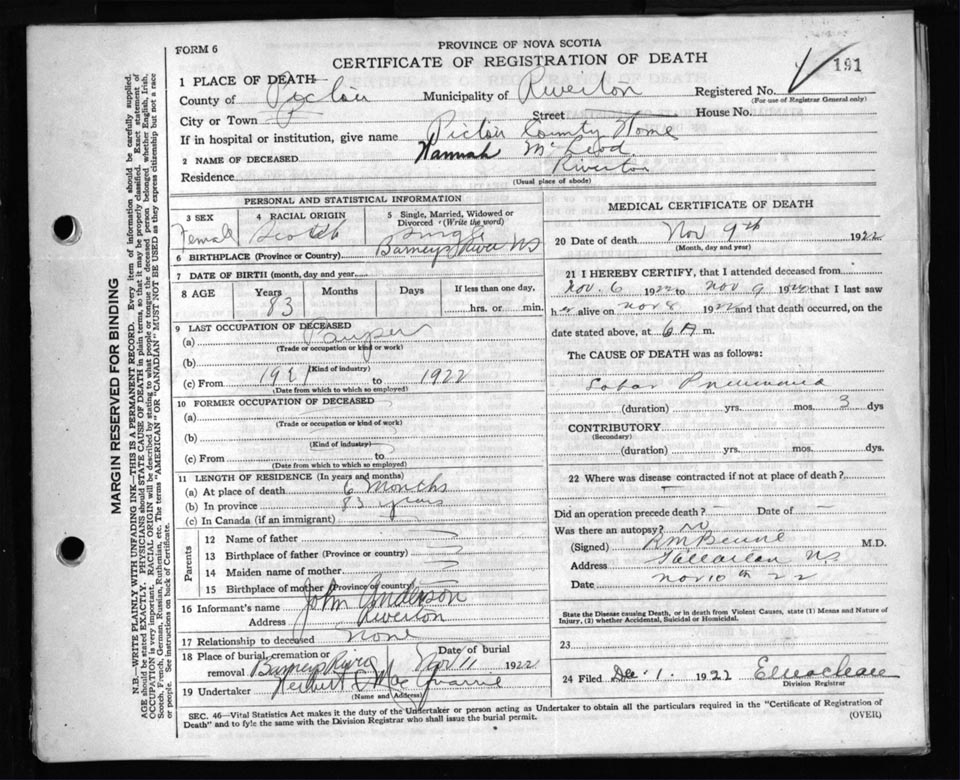 FORM 6
PROVINCE OF NOVA SCOTIA
CERTIFICATE OF REGISTRATION OF DEATH
191
1 PLACE OF DEATH
County of Pictou Municipality of Riverton Registered No.
(For use of Registrar General only)
City or Town Street House No.
If in hospital or institution, give name Pictou County Home
2 NAME OF DECEASED Hannah McLeod
Residence Riverton
(Usual place of abode)
PERSONAL AND STATISTICAL INFORMATION
3 SEX
Female
4 RACIAL ORIGIN
Scotch
5 Single, Married, Widowed or Divorced (Write the word)
Single
6 BIRTHPLACE (Province or Country) Barneys River NS
7 DATE OF BIRTH (month, day and year)
8 AGE Years Months Days If less than one day,
83 hrs. or min.
9 LAST OCCUPATION OF DECEASED
(a) Pauper
(Trade or occupation or kind or work)
(b)
(Kind of industry)
(c) From to 1922
(Date from which to which so employed)
10 FORMER OCCUPATION OF DECEASED
(a)
(Trade or occupation or kind of work)
(b)
(Kind of industry)
(c) From to
(Date from which to which so employed)
11 LENGTH OF RESIDENCE (In years and months)
(a) At place of death 6 Months
(b) In province 83 years
(c) In Canada (if an immigrant)
Parents
12 Name of father
13 Birthplace of father (Province or country)
14 Maiden name of mother
15 Birthplace of mother (Province or country)
16 Informant's name John Anderson
Address Riverton
17 Relationship to deceased None
18 Place of burial, cremation or removal Barneys River
Date of burial
Nov 11 1922
19 Undertaker Herbert
(Name and Address)
MEDICAL CERTIFICATE OF DEATH
20 Date of death Nov 9th 1922
(Month, day and year)
21 I HEREBY CERTIFY, that I attended deceased from
Nov. 6 1922 to Nov 9 1922 that I last saw
her alive on Nov 8 1922 and that death occurred, on the
date stated above, at 6 A m.
The CAUSE OF DEATH was as follows:
Lobar Pneumonia
(duration) yrs. mos. 3 dys
CONTRIBUTORY
(Secondary)
(duration) yrs. mos. dys.
22 Where was disease contracted if not at place of death?
Did an operation precede death? – Date of –
Was there an autopsy? no
(Signed) M.D.
Address N.S.
Date Nov 10th 22
State the Disease causing Death, or in death from Violent Causes, state (1) Means and Nature of
Injury, (2) whether Accidental, Suicidal or Homicidal.
23
24 Filed Dec. 1. 1922
Division Registrar
SEC. 46—Vital Statistics Act makes it the duty of the Undertaker or person acting as Undertaker to obtain all the particulars required in the "Certificate of Registration of
Death" and to fyle the same with the Division Registrar who shall issue the burial permit.
(OVER)
MARGIN RESERVED FOR BINDING
N.B.—WRITE PLAINLY WITH UNFADING INK—THIS IS A PERMANENT RECORD. Every item of information should be carefully supplied.
AGE should be stated EXACTLY. PHYSICIANS should STATE CAUSE OF DEATH in plain terms, so that it may be properly classified. Exact statement of
OCCUPATION is very important. RACIAL ORIGIN will be described by stating to what people or tongue the deceased person belonged whether English, Irish,
Scotch, French, German, Russian, Ruthenian, etc. The terms "AMERICAN" OR "CANADIAN" MUST NOT BE USED as they express citizenship but not a race
or people. See instructions on back of Certificate.